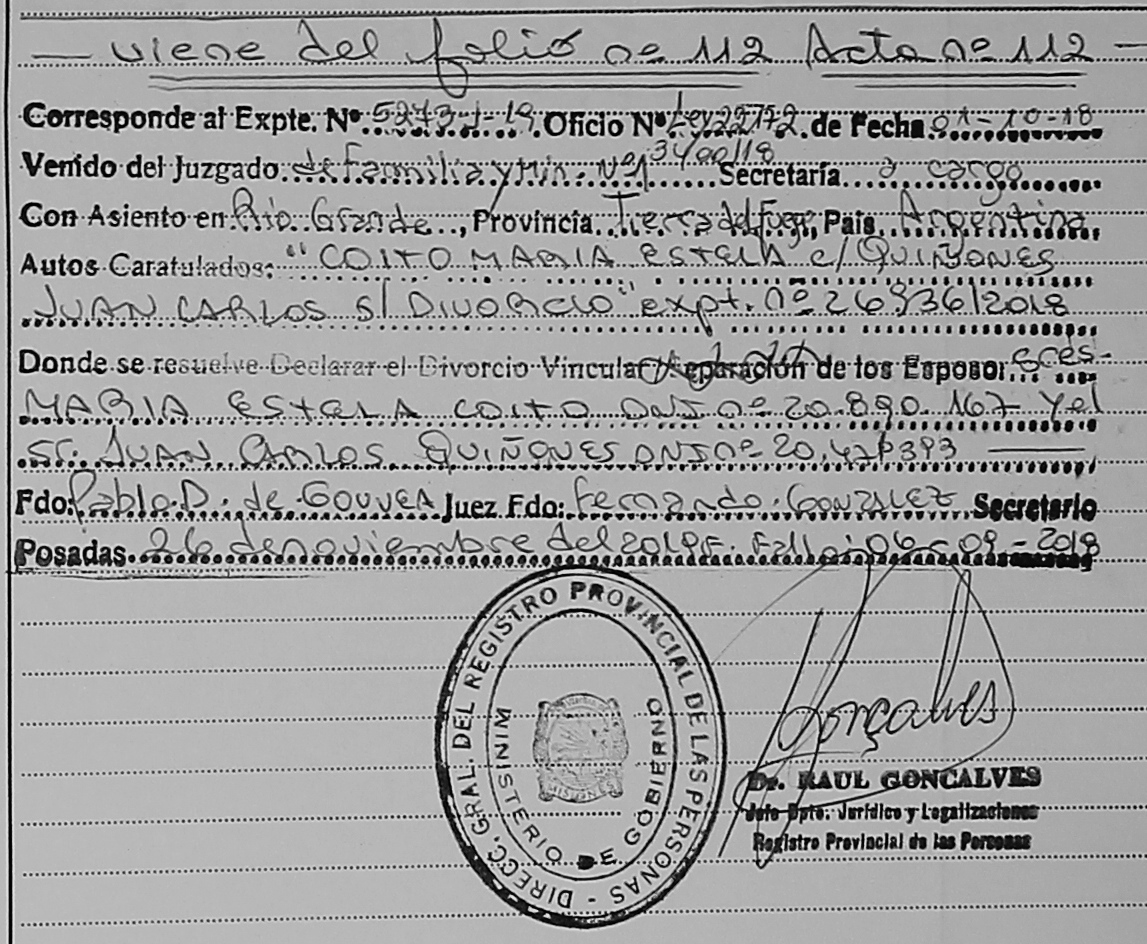 — viene del folio nº 112 Acta nº 112 —
Corresponde al Expte. Nº 5273-I-19. Oficio Nº Ley 22172. de Fecha 01-10-18
Venido del Juzgado de Familia y Min. Nº1 3400/18 Secretaría a cargo
Con Asiento en Rio Grande, Provincia Tierra del Fuego, País Argentina
Autos Caratulados: "COITO MARIA ESTELA c/ QUIÑONES
JUAN CARLOS S/ DIVORCIO" expt. nº 26936/2018
Donde se resuelve Declarar el Divorcio Vincular Separación de los Esposos
MARIA ESTELA COITO DNI nº 20.890.167 y el
Sr. JUAN CARLOS QUIÑONES DNI nº
Fdo: Pablo D. de GOUVEA Juez Fdo: Fernando GONZALEZ Secretario
Posadas 26 de noviembre del 2019 Fallo: 06-09-2018
DIRECC. GRAL. DEL REGISTRO PROVINCIAL DE LAS PERSONAS -
MINISTERIO DE GOBIERNO
MISIONES
Goncalves
Dr. RAUL GONCALVES
Jefe Dpto. Jurídico y Legalizaciones
Registro Provincial de las Personas